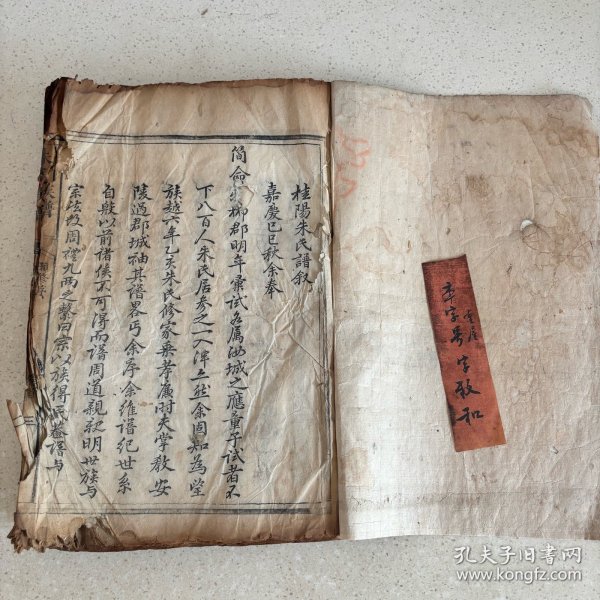 桂陽朱氏譜叙
嘉慶己巳秋余奉
簡命郴郡明年彙試各属汝城之應童子試者不
下八百人朱氏居叁之一入泮亦然余固知為望
族越六年乙亥朱氏修家乘孝廉時夫掌教安
陵過郡城袖其譜畧丐余序余維譜紀世系
自殷以前諸侯不可得而譜周道親親明世族与
宗法故周禮九两之繫曰宗以族得民益譜与
本字号
字敬和
孔夫子旧书网
www.kongfz.com